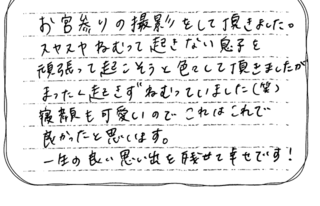 お宮参りの撮影をして頂きました。
スヤスヤねむって起きない息子を
頑張って起こそうと色々して頂きましたが
まったく起きずねむっていました(笑)
寝顔も可愛いので これはこれで
良かったと思います。
一生の良い思い出を残せて幸せです!